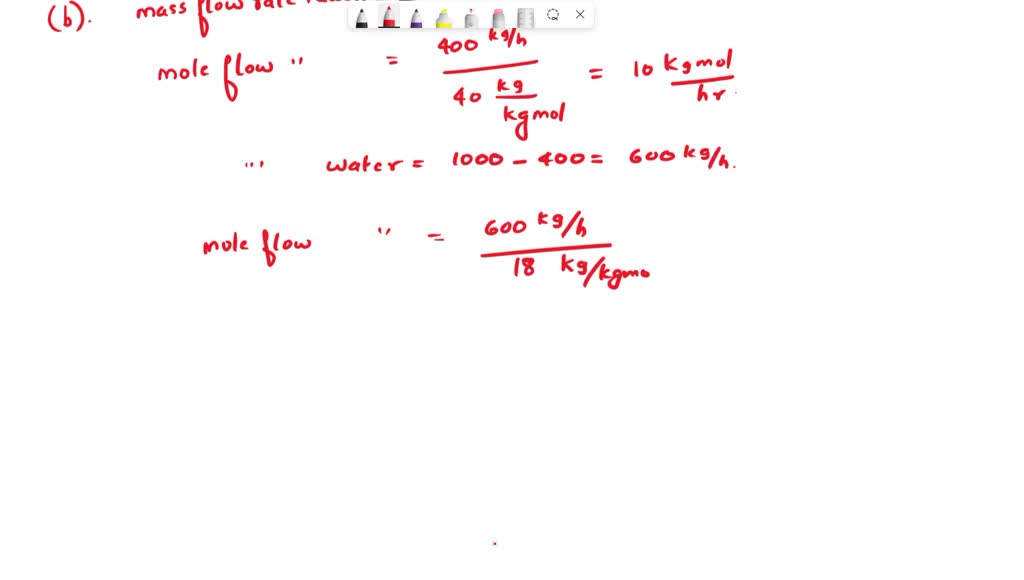 (b). mass flow rate
mole flow " = 400 kg/h / 40 kg/kgmol = 10 kgmol/hr.
"' water = 1000 - 400 = 600 kg/h.
mole flow " = 600 kg/h / 18 kg/kgmo